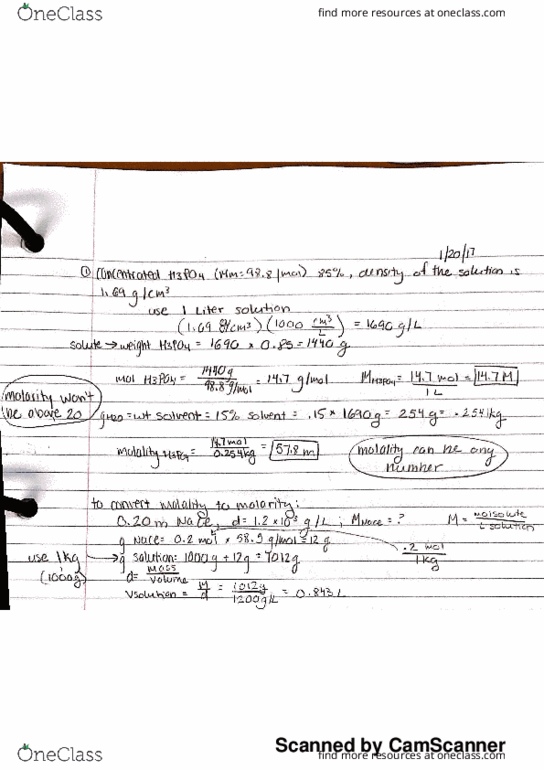 OneClass
find more resources at oneclass.com
1/20/17
① Concentrated H3PO4 (Mm=98.8/mol) 85%, density of the solution is
1.69 g/cm³
use 1 Liter solution
(1.69 g/cm³)(1000 cm³/L) = 1690 g/L
solute → weight H3PO4 = 1690 × 0.85 = 1440 g
mol H3PO4 = 1440g / 98.8 g/mol = 14.7 g/mol M H3PO4 = 14.7 mol / 1L = 14.7 M
molarity won't
be above 20
gH2O = wt solvent = 15% solvent = .15 × 1690g = 254g = .254kg
molality H3PO4 = 14.7mol / 0.254kg = 57.8 m
molality can be any
number
to convert molality to molarity:
0.20m NaCl, d= 1.2 × 10³ g/L ; MNaCl = ? M = mol solute / L solution
g NaCl = 0.2 mol × 58.5 g/mol = 12 g
.2 mol / 1kg
use 1kg
(1000g)
→ g solution: 1000g + 12g = 1012g
d = mass / volume
Vsolution = M / d = 1012g / 1200g/L = 0.843 L
Scanned by CamScanner
OneClass
find more resources at oneclass.com